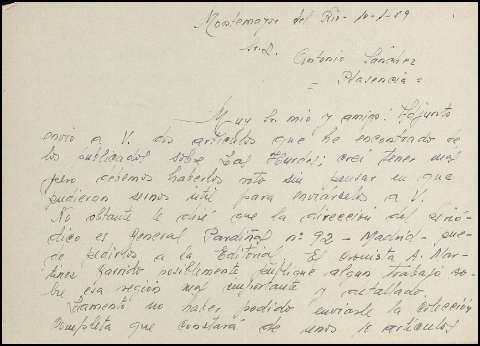 Montemayor del Río - 10-1-89
Sr. D.
Antonio Sánchez
= Plasencia =
Muy Sr. mio y amigo: Adjunto
envio a V. dos articulos que he encontrado de
los publicados sobre Las Hurdes; crei tener más
pero debemos haberlos roto sin pensar en que
pudieron sernos útil para enviárselos a V.
No obtante le diré que la dirección del perió-
dico es General Pardiñas nº 92 - Madrid - pue-
de pedirlos a la Editorial. El cronista A. Mar-
tinez Garrido posiblemente publique algun trabajo so-
bre esa región mas importante y detallado.
Lamento no haber podido enviarle la colección
completa que constará de unos artículos